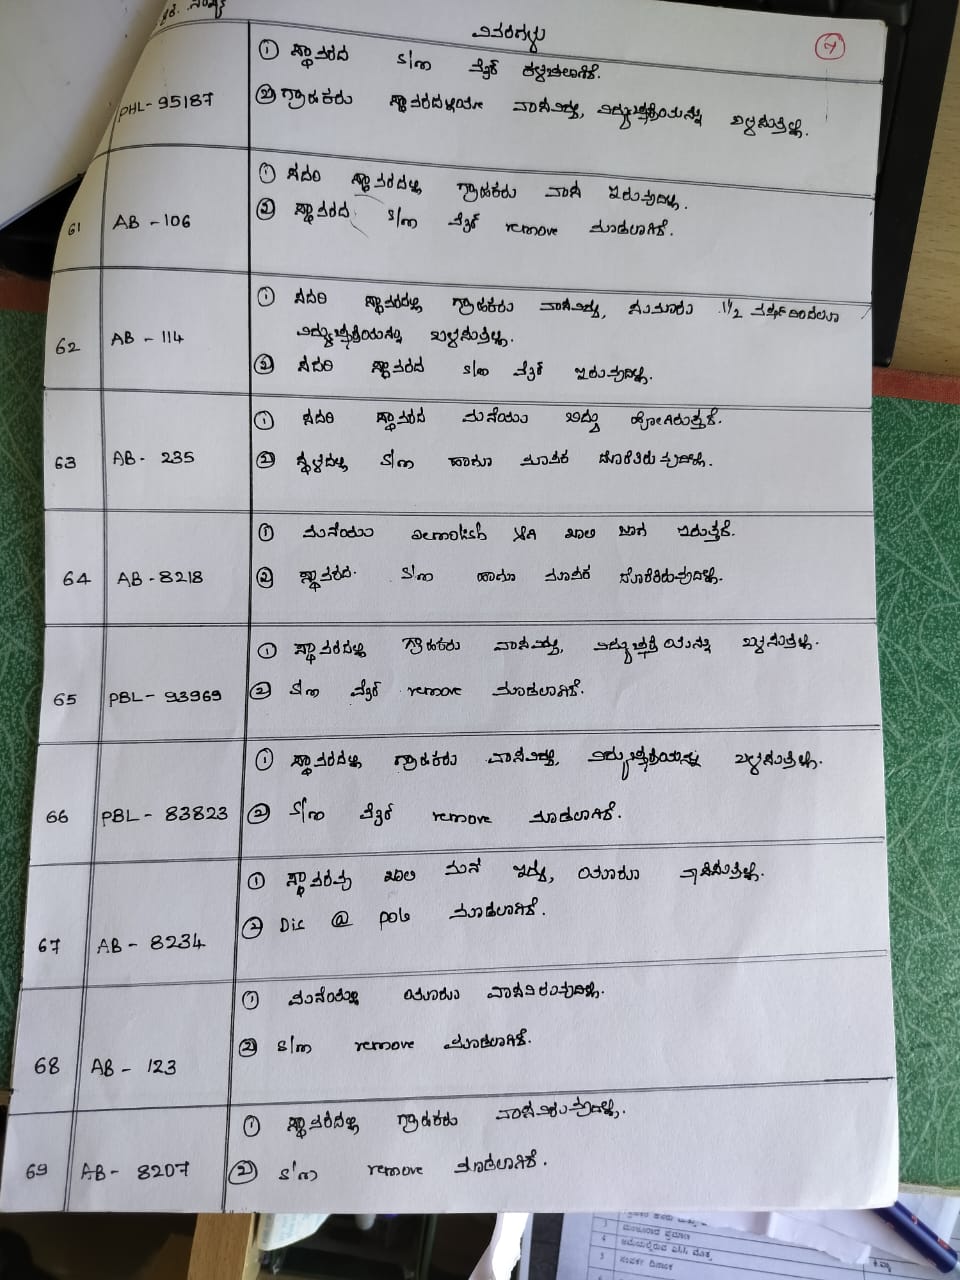 ವಿವರಗಳು
7
① ಸ್ಥಾವರದ S/m ವೈರ್ ಕಳಚಲಾಗಿದೆ.
PHL-95187 ② ಗ್ರಾಹಕರು ಸ್ಥಾವರದಲ್ಲಿಯೇ ವಾಸವಿದ್ದು, ವಿದ್ಯುಚ್ಛಕ್ತಿಯನ್ನು ಬಳಸುತ್ತಿಲ್ಲ.
① ಸದರಿ ಸ್ಥಾವರದಲ್ಲಿ ಗ್ರಾಹಕರು ವಾಸ ಇರುವುದಿಲ್ಲ.
61 AB - 106 ② ಸ್ಥಾವರದ S/m ವೈರ್ remove ಮಾಡಲಾಗಿದೆ.
① ಸದರಿ ಸ್ಥಾವರದಲ್ಲಿ ಗ್ರಾಹಕರು ವಾಸವಿದ್ದು, ಸುಮಾರು 1½ ವರ್ಷದಿಂದಲೂ
62 AB - 114 ವಿದ್ಯುಚ್ಛಕ್ತಿಯನ್ನು ಬಳಸುತ್ತಿಲ್ಲ.
② ಸದರಿ ಸ್ಥಾವರದ S/m ವೈರ್ ಇರುವುದಿಲ್ಲ.
① ಸದರಿ ಸ್ಥಾವರದ ಮನೆಯು ಬಿದ್ದು ಹೋಗಿರುತ್ತದೆ.
63 AB - 235 ② ಸ್ಥಳದಲ್ಲಿ S/m ಹಾಗೂ ಮಾಪಕ ದೊರೆತಿರುವುದಿಲ್ಲ.
① ಮನೆಯು Demolish ಆಗಿ ಖಾಲಿ ಜಾಗ ಇರುತ್ತದೆ.
64 AB - 8218 ② ಸ್ಥಾವರದ S/m ಹಾಗೂ ಮಾಪಕ ದೊರೆತಿರುವುದಿಲ್ಲ.
① ಸ್ಥಾವರದಲ್ಲಿ ಗ್ರಾಹಕರು ವಾಸವಿದ್ದು, ವಿದ್ಯುಚ್ಛಕ್ತಿಯನ್ನು ಬಳಸುತ್ತಿಲ್ಲ.
65 PBL - 93969 ② S/m ವೈರ್ remove ಮಾಡಲಾಗಿದೆ.
① ಸ್ಥಾವರದಲ್ಲಿ ಗ್ರಾಹಕರು ವಾಸವಿದ್ದು, ವಿದ್ಯುಚ್ಛಕ್ತಿಯನ್ನು ಬಳಸುತ್ತಿಲ್ಲ.
66 PBL - 83823 ② S/m ವೈರ್ remove ಮಾಡಲಾಗಿದೆ.
① ಸ್ಥಾವರವು ಖಾಲಿ ಮನೆ ಇದ್ದು, ಯಾರೂ ವಾಸಿಸುತ್ತಿಲ್ಲ.
67 AB - 8234 ② Dis @ pole ಮಾಡಲಾಗಿದೆ.
① ಮನೆಯಲ್ಲಿ ಯಾರೂ ವಾಸವಿರುವುದಿಲ್ಲ.
68 AB - 123 ② S/m remove ಮಾಡಲಾಗಿದೆ.
① ಸ್ಥಾವರದಲ್ಲಿ ಗ್ರಾಹಕರು ವಾಸವಿರುವುದಿಲ್ಲ.
69 AB - 8207 ② S/m remove ಮಾಡಲಾಗಿದೆ.
3 ಮಂಜೂರಾದ ಪ್ರಮಾಣ
4
5 ಸಂಪರ್ಕ ದಿನಾಂಕ